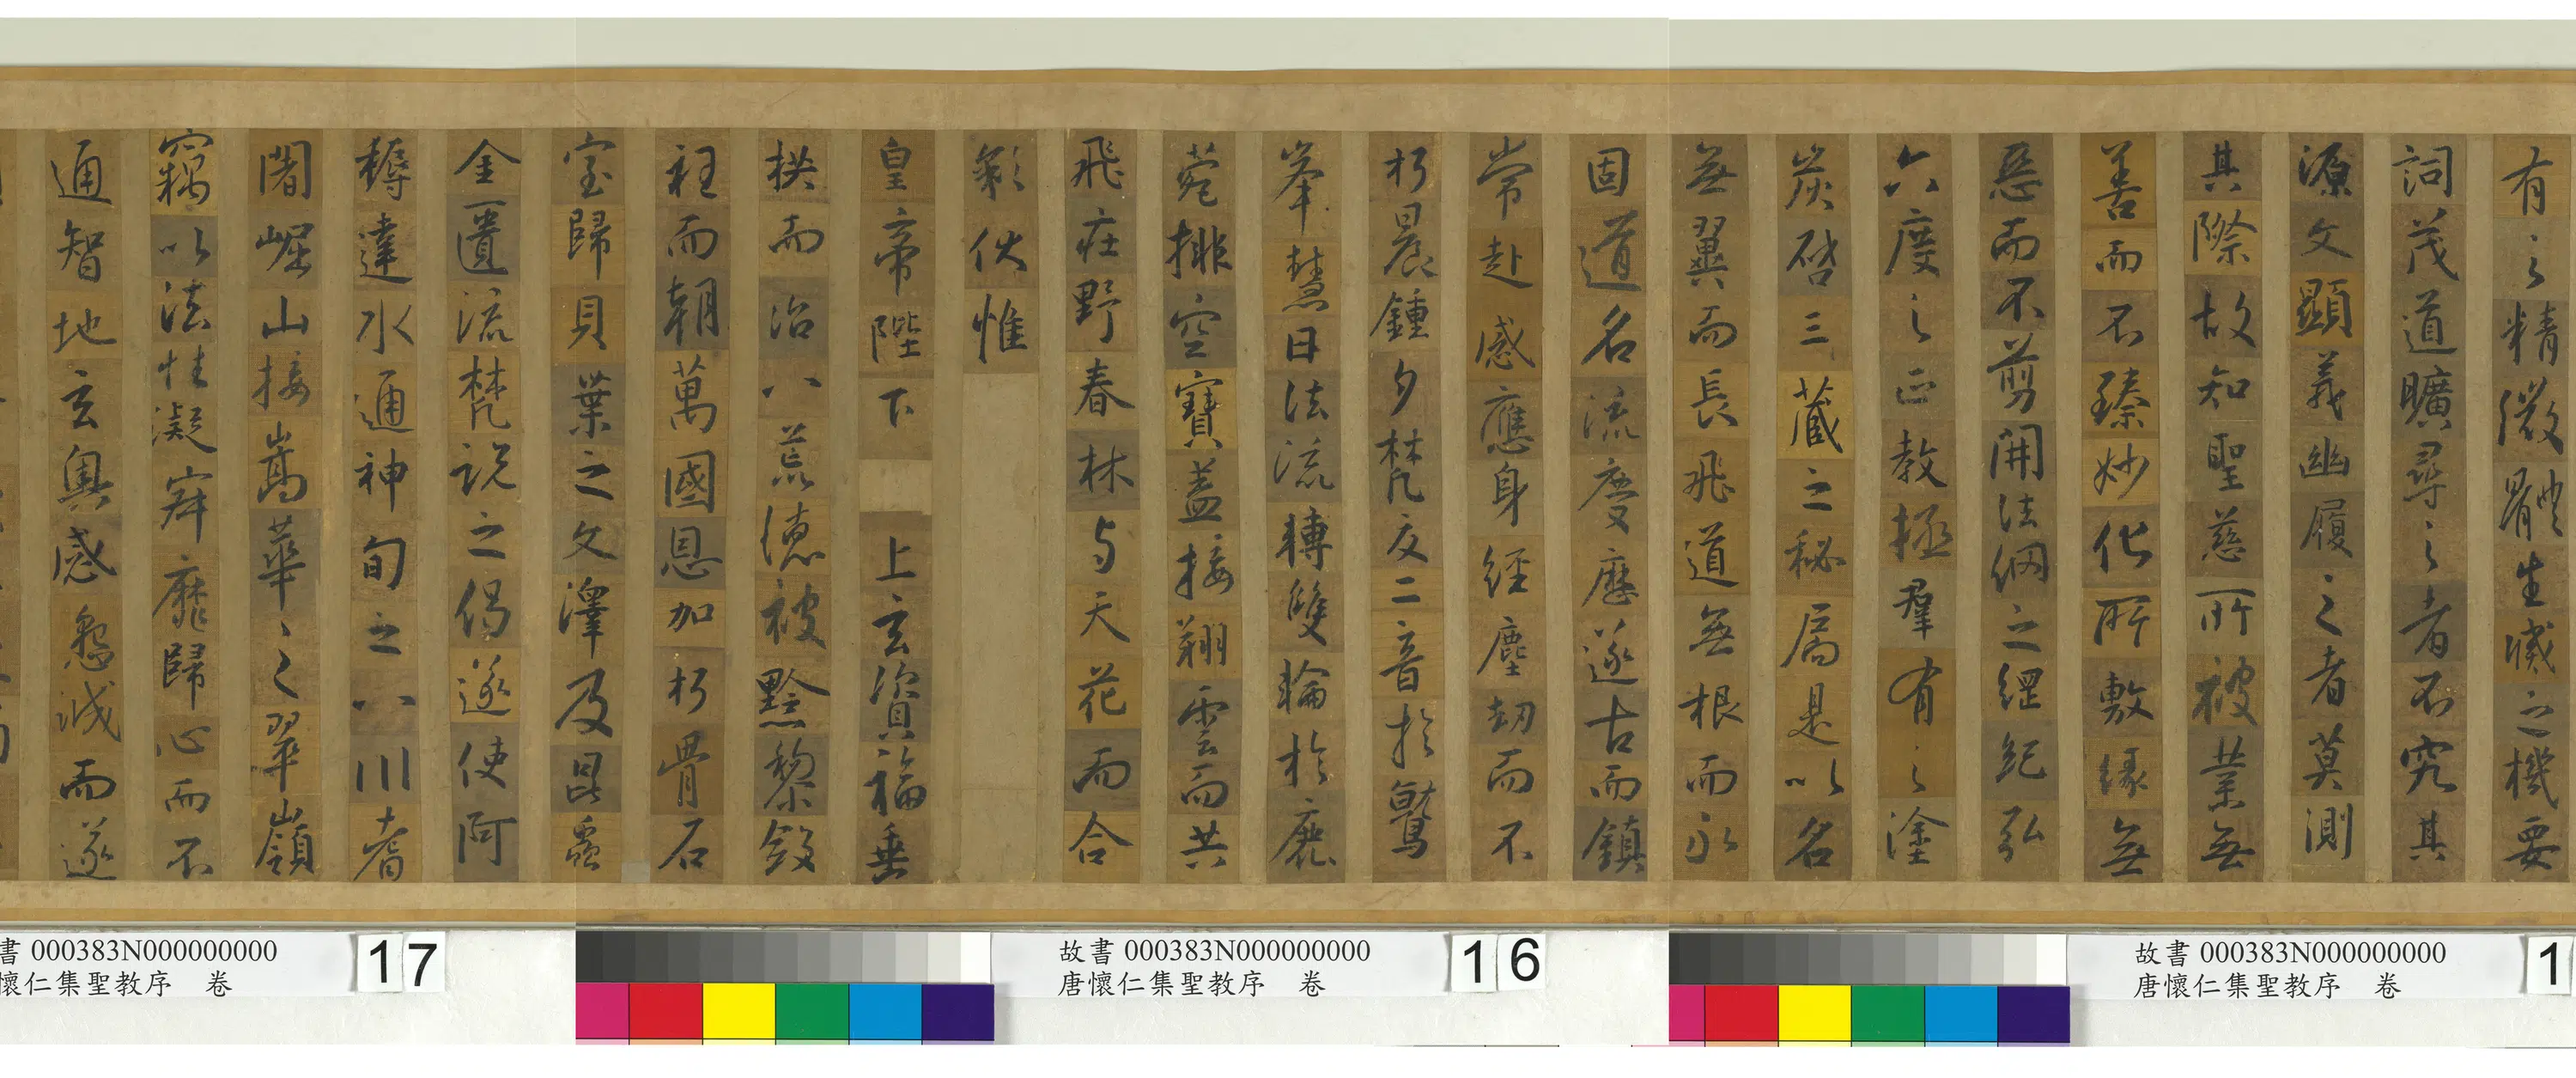 有之精微體生滅之機要
詞茂道曠尋之者不究其
源文顯義幽履之者莫測
其際故知聖慈所被業無
善而不臻妙化所敷緣無
惡而不剪開法網之綱紀弘
六度之正教拯羣有之塗
炭啓三藏之秘扃是以名
無翼而長飛道無根而永
固道名流慶歷遂古而鎮
常赴感應身經塵劫而不
朽晨鍾夕梵交二音於鷲
峯慧日法流轉雙輪於鹿
菀排空寶蓋接翔雲而共
飛莊野春林与天花而合
彩伏惟
皇帝陛下 上玄資福垂
拱而治八荒德被黔黎斂
衽而朝萬國恩加朽骨石
室歸貝葉之文澤及昆蟲
金匱流梵說之偈遂使阿
耨達水通神甸之八川耆
闍崛山接嵩華之翠嶺
竊以法性凝寂靡歸心而不
通智地玄奧感懇誠而遂
書 000383N000000000
懷仁集聖教序 卷
17
故書 000383N000000000
唐懷仁集聖教序 卷
16
故書 000383N000000000
唐懷仁集聖教序 卷
1